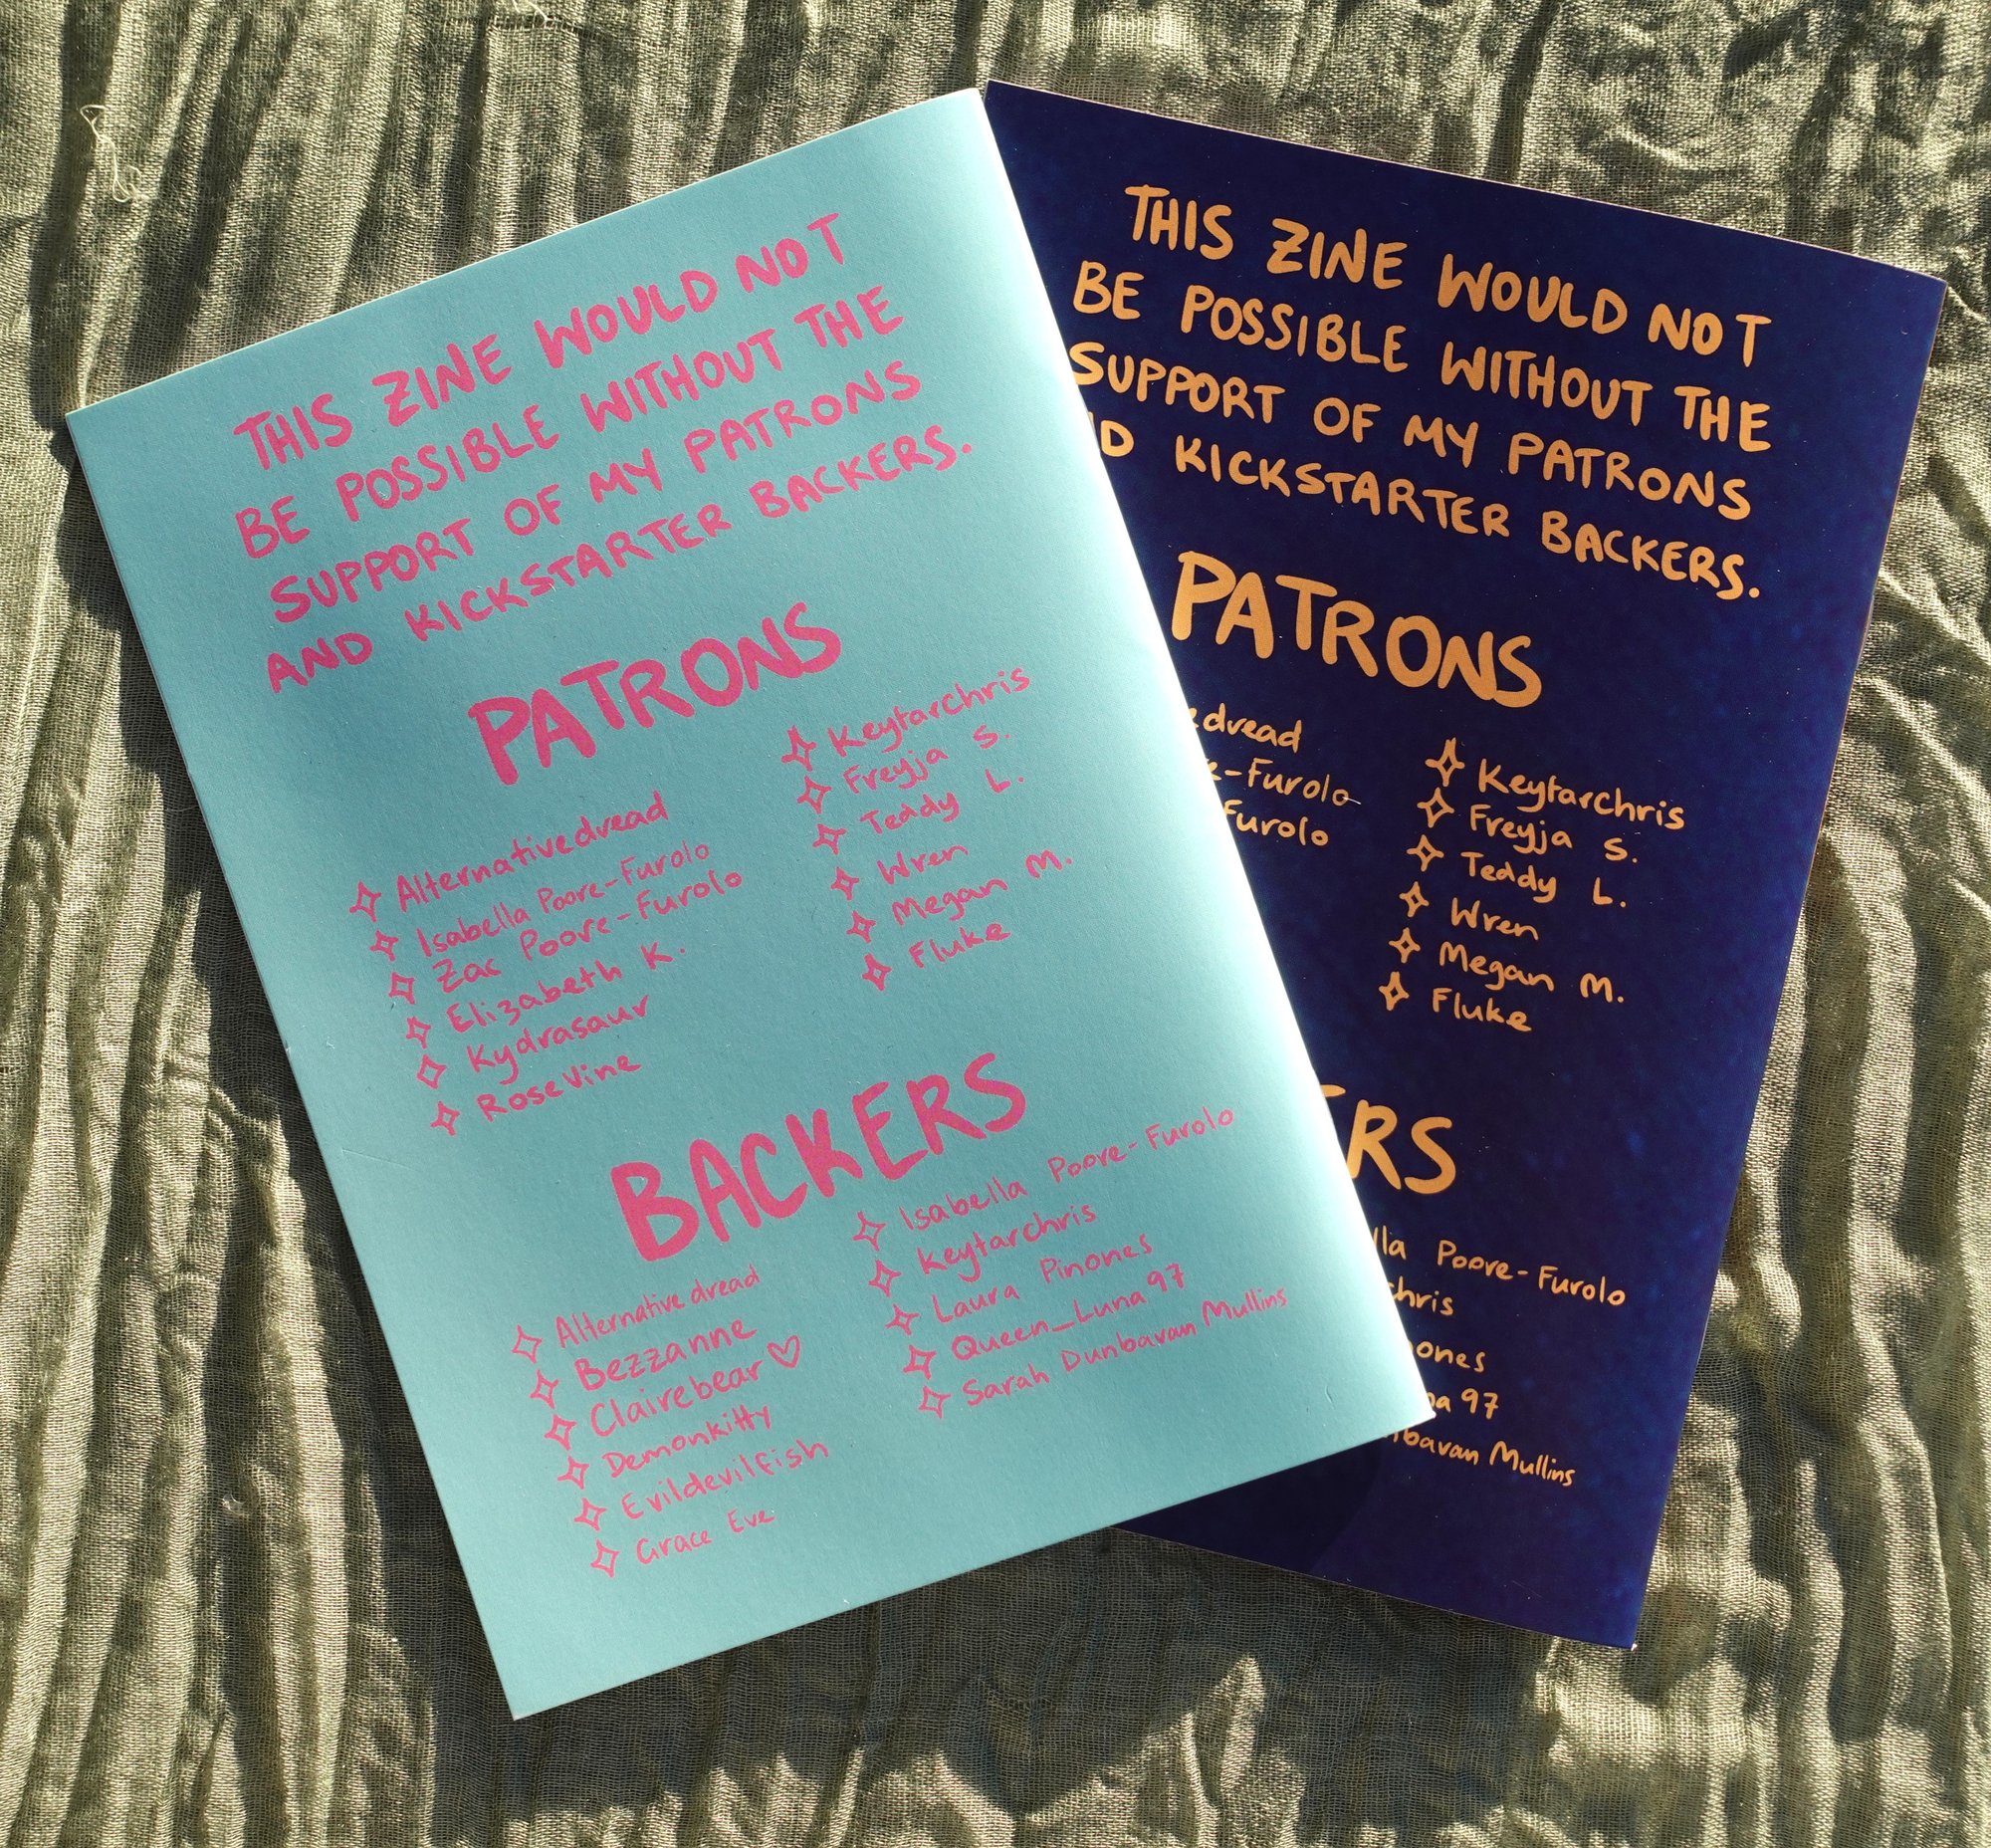 THIS ZINE WOULD NOT
BE POSSIBLE WITHOUT THE
SUPPORT OF MY PATRONS
AND KICKSTARTER BACKERS.
PATRONS
Alternativedread
Isabella Poore-Furolo
Zac Poore-Furolo
Elizabeth K.
Kydrasaur
RoseVine
Keytarchris
Freyja S.
Teddy L.
Wren
Megan M.
Fluke
BACKERS
Alternative dread
Bezzanne
Clairebear♡
Demonkitty
Evildevilfish
Grace Eve
Isabella Poore-Furolo
Keytarchris
Laura Pinones
Queen_Luna97
Sarah Dunbavan Mullins
THIS ZINE WOULD NOT
BE POSSIBLE WITHOUT THE
SUPPORT OF MY PATRONS
D KICKSTARTER BACKERS.
PATRONS
edread
e-Furolo
Furolo
Keytarchris
Freyja S.
Teddy L.
Wren
Megan M.
Fluke
ERS
lla Poore-Furolo
chris
ones
na97
nbavan Mullins